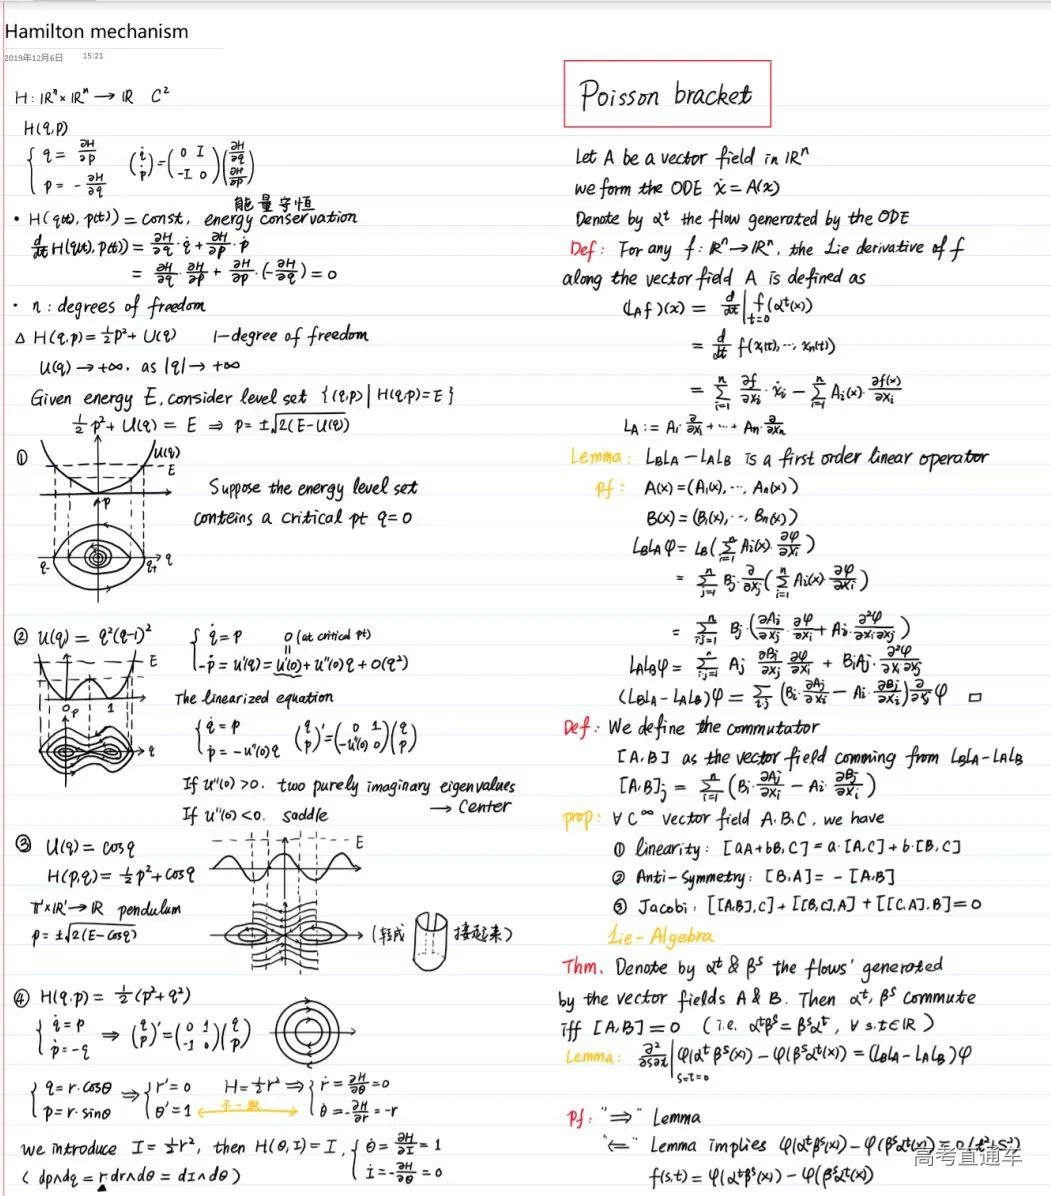 Hamilton mechanism
2019年12月6日 15:21
H: ℝⁿ × ℝⁿ → ℝ C²
H(q,p)
{ q = ∂H/∂p
p = -∂H/∂q
(q̇ ṗ) = (0 I -I 0)(∂H/∂q ∂H/∂p)
能量守恒
• H(q(t), p(t)) = const, energy conservation
d/dt H(q(t), p(t)) = ∂H/∂q · q̇ + ∂H/∂p · ṗ
= ∂H/∂q · ∂H/∂p + ∂H/∂p · (-∂H/∂q) = 0
• n : degrees of freedom
△ H(q,p) = ½p² + U(q) 1-degree of freedom
U(q) → +∞, as |q| → +∞
Given energy E, consider level set {(q,p) | H(q,p)=E}
½p² + U(q) = E ⇒ p = ±√2(E-U(q))
①
U(q)
E
p
q- q+ q
Suppose the energy level set
conteins a critical pt q=0
② U(q) = q²(q-1)²
E
0 1
p
q
{ q̇ = p 0 (at critical pt)
-ṗ = U'(q) = U'(0) + U''(0)q + O(q²)
The linearized equation
{ q̇ = p
ṗ = -U''(0)q
(q p)' = (0 1 -U''(0) 0)(q p)
If U''(0) > 0, two purely imaginary eigenvalues
→ center
If U''(0) < 0, saddle
③ U(q) = cosq
E
H(p,q) = ½p² + cosq
𝕋¹×ℝ¹ → ℝ pendulum
p = ±√2(E-cosq)
(转成 接起来)
④ H(q,p) = ½(p²+q²)
{ q̇ = p
ṗ = -q
⇒ (q p)' = (0 1 -1 0)(q p)
{ q = r·cosθ
p = r·sinθ
⇒ { r' = 0
θ' = 1
不一致
H = ½r² ⇒ { ṙ = ∂H/∂θ = 0
θ̇ = -∂H/∂r = -r
we introduce I = ½r², then H(θ,I) = I, { θ̇ = ∂H/∂I = 1
İ = -∂H/∂θ = 0
(dp∧dq = r dr∧dθ = dI∧dθ)
Poisson bracket
Let A be a vector field in ℝⁿ
we form the ODE ẋ = A(x)
Denote by αᵗ the flow generated by the ODE
Def: For any f: ℝⁿ → ℝⁿ, the Lie derivative of f
along the vector field A is defined as
(L_A f)(x) = d/dt|t=0 f(αᵗ(x))
= d/dt f(x₁(t), ···, xₙ(t))
= Σⁿᵢ₌₁ ∂f/∂xᵢ · ẋᵢ - Σⁿᵢ₌₁ Aᵢ(x) · ∂f(x)/∂xᵢ
L_A := A₁ ∂/∂x₁ + ··· + Aₙ ∂/∂xₙ
Lemma: L_B L_A - L_A L_B is a first order linear operator
pf: A(x) = (A₁(x), ···, Aₙ(x))
B(x) = (B₁(x), ···, Bₙ(x))
L_B L_A φ = L_B(Σⁿᵢ₌₁ Aᵢ(x) · ∂φ/∂xᵢ)
= Σⁿⱼ₌₁ Bⱼ · ∂/∂xⱼ (Σⁿᵢ₌₁ Aᵢ(x) · ∂φ/∂xᵢ)
= Σⁿᵢ,ⱼ₌₁ Bⱼ · (∂Aᵢ/∂xⱼ · ∂φ/∂xᵢ + Aᵢ · ∂²φ/∂xᵢ∂xⱼ)
L_A L_B φ = Σⁿᵢ,ⱼ₌₁ Aⱼ ∂Bᵢ/∂xⱼ ∂φ/∂xᵢ + BᵢAⱼ · ∂²φ/∂xᵢ∂xⱼ
(L_B L_A - L_A L_B)φ = Σᵢ,ⱼ (Bᵢ · ∂Aⱼ/∂xᵢ - Aᵢ · ∂Bⱼ/∂xᵢ) ∂/∂xⱼ φ □
Def: We define the commutator
[A,B] as the vector field comming from L_B L_A - L_A L_B
[A,B]ⱼ = Σⁿᵢ₌₁ (Bᵢ · ∂Aⱼ/∂xᵢ - Aᵢ · ∂Bⱼ/∂xᵢ)
prop: ∀ C^∞ vector field A.B.C, we have
① linearity: [aA+bB,C] = a·[A,C] + b·[B,C]
② Anti-Symmetry: [B,A] = -[A,B]
③ Jacobi: [[A,B],C] + [[B,C],A] + [[C,A],B] = 0
Lie-Algebra
Thm. Denote by αᵗ & βˢ the flows' generated
by the vector fields A & B. Then αᵗ, βˢ commute
iff [A,B] = 0 (i.e. αᵗβˢ = βˢαᵗ, ∀ s.t∈ℝ)
Lemma: ∂²/∂s∂t|s=t=0 φ(αᵗβˢ(x)) - φ(βˢαᵗ(x)) = (L_B L_A - L_A L_B)φ
Pf: "⇒" Lemma
"⇐" Lemma implies φ(αᵗβˢ(x)) - φ(βˢαᵗ(x)) = o(t²+s²)
f(s,t) = φ(αᵗβˢ(x)) - φ(βˢαᵗ(x))
高考直通车